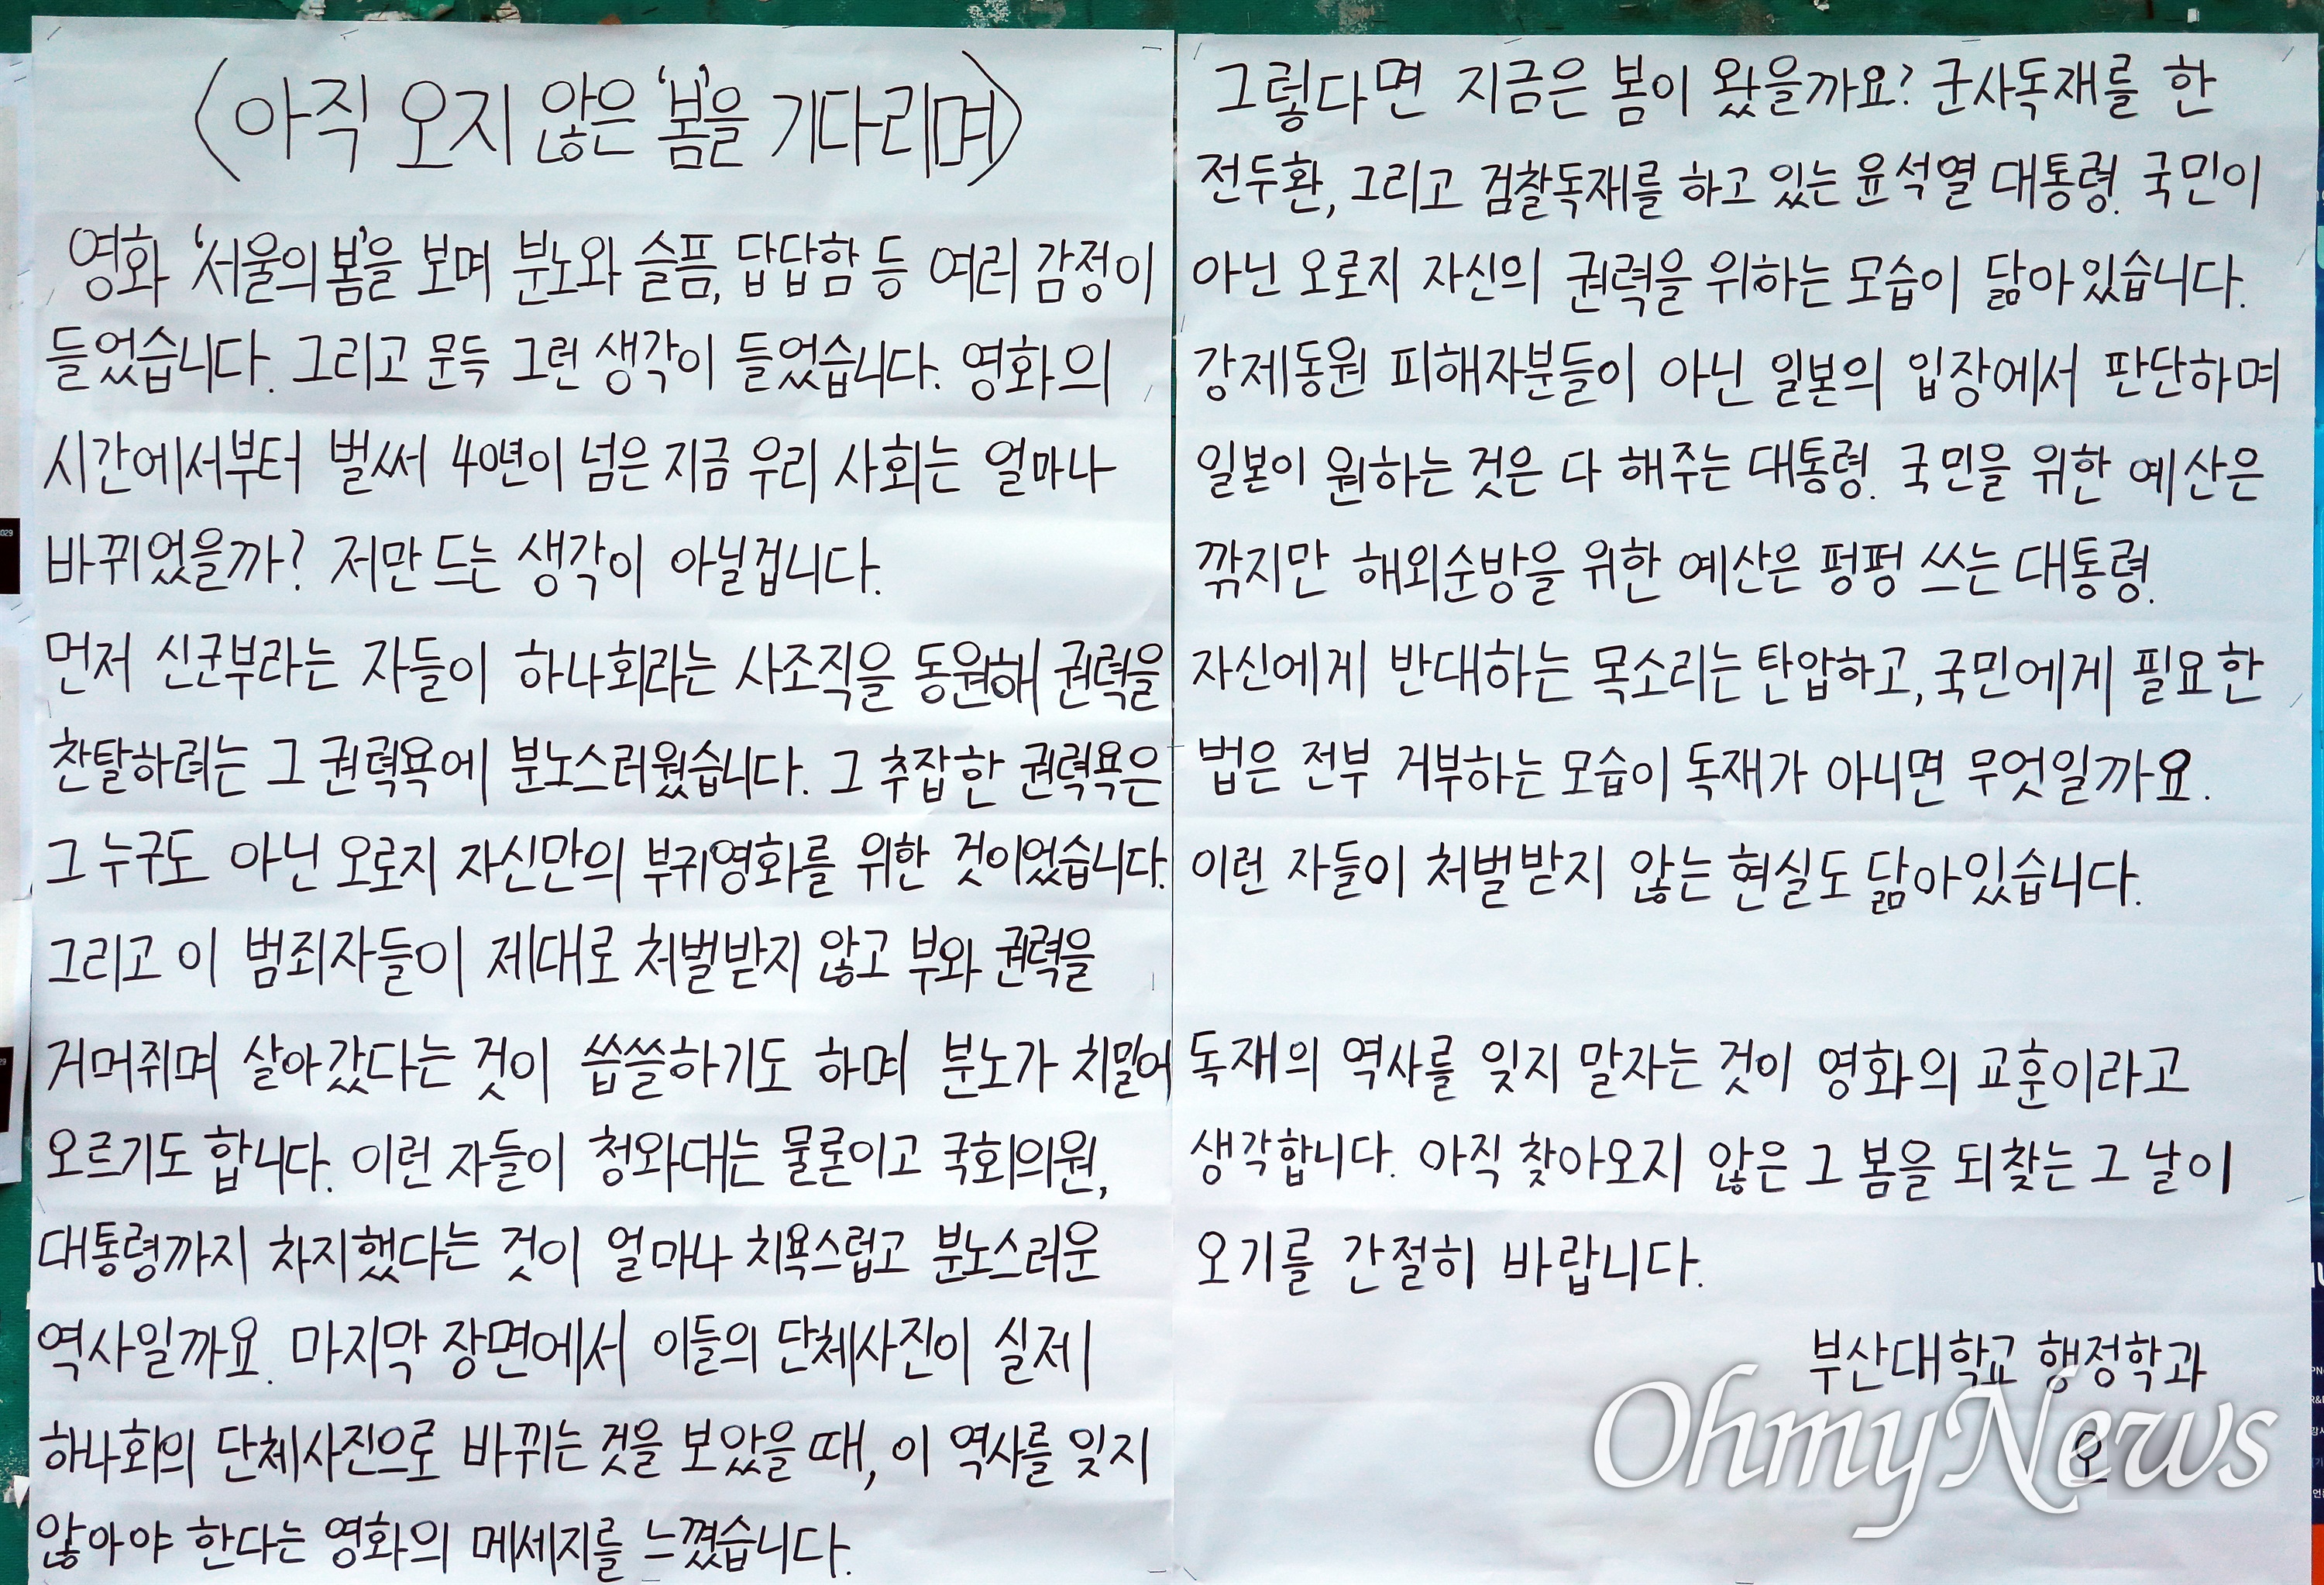 <아직 오지 않은 '봄'을 기다리며>
영화 '서울의 봄'을 보며 분노와 슬픔, 답답함 등 여러 감정이
들었습니다. 그리고 문득 그런 생각이 들었습니다. 영화의
시간에서부터 벌써 40년이 넘은 지금 우리 사회는 얼마나
바뀌었을까? 저만 드는 생각이 아닐겁니다.
먼저 신군부라는 자들이 하나회라는 사조직을 동원해 권력을
찬탈하려는 그 권력욕에 분노스러웠습니다. 그 추잡한 권력욕은
그 누구도 아닌 오로지 자신만의 부귀영화를 위한 것이었습니다.
그리고 이 범죄자들이 제대로 처벌받지 않고 부와 권력을
거머쥐며 살아갔다는 것이 씁쓸하기도 하며 분노가 치밀어
오르기도 합니다. 이런 자들이 청와대는 물론이고 국회의원,
대통령까지 차지했다는 것이 얼마나 치욕스럽고 분노스러운
역사일까요. 마지막 장면에서 이들의 단체사진이 실제
하나회의 단체사진으로 바뀌는 것을 보았을 때, 이 역사를 잊지
않아야 한다는 영화의 메세지를 느꼈습니다.
그렇다면 지금은 봄이 왔을까요? 군사독재를 한
전두환, 그리고 검찰독재를 하고 있는 윤석열 대통령. 국민이
아닌 오로지 자신의 권력을 위하는 모습이 닮아있습니다.
강제동원 피해자분들이 아닌 일본의 입장에서 판단하며
일본이 원하는 것은 다 해주는 대통령. 국민을 위한 예산은
깎지만 해외순방을 위한 예산은 펑펑 쓰는 대통령.
자신에게 반대하는 목소리는 탄압하고, 국민에게 필요한
법은 전부 거부하는 모습이 독재가 아니면 무엇일까요.
이런 자들이 처벌받지 않는 현실도 닮아있습니다.
독재의 역사를 잊지 말자는 것이 영화의 교훈이라고
생각합니다. 아직 찾아오지 않은 그 봄을 되찾는 그 날이
오기를 간절히 바랍니다.
부산대학교 행정학과
오
OhmyNews